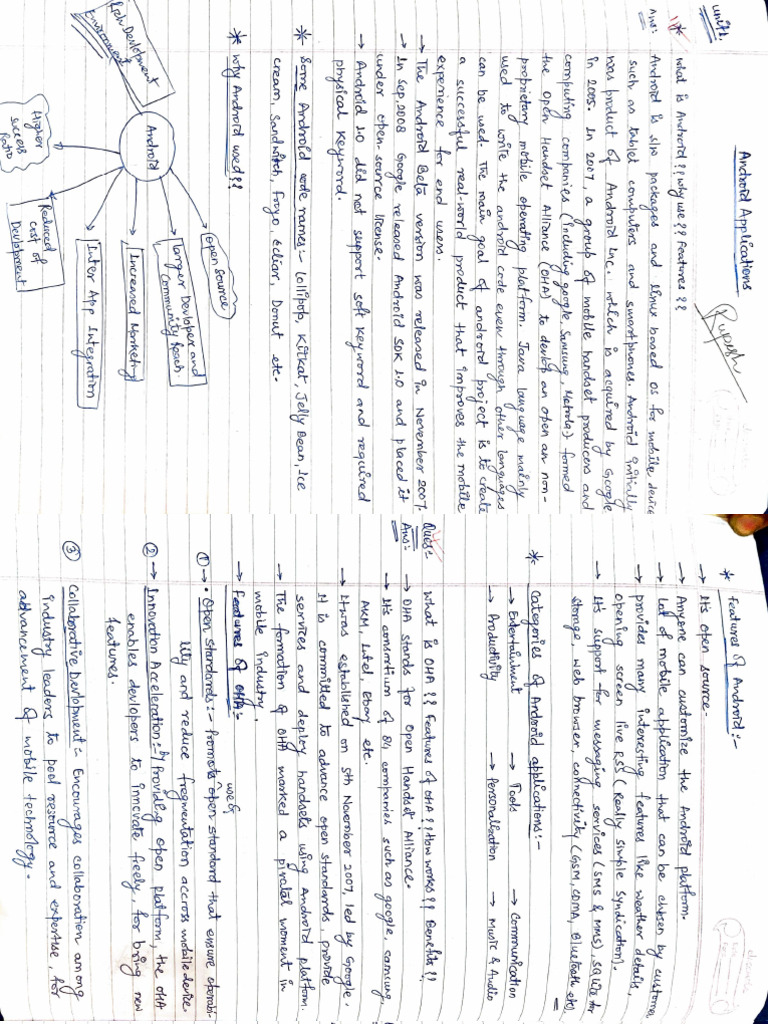 Android Applications
Rupesh
unit:1
* what is Android?? why use?? Features??
Ans:- Android is s/w packages and linux based os for mobile device
such as tablet computers and smartphones. Android initially
was product of Android Inc. which is acquired by Google
in 2005. In 2007, a group of mobile handset producers and
computing companies (including google, Samsung, Motorola) formed
the Open Handset Alliance (OHA) to develop an open an non-
proprietary mobile operating platform. Java language mainly
used to write the android code even through other languages
can be used. The main goal of android project is to create
a successful real-world product that improves the mobile
experience for end users.
→ The Android Beta version was released in November 2007.
→ In Sep, 2008 Google released Android SDK 1.0 and placed it
under open-source license.
→ Android 1.0 did not support soft keyword and required
physical keyword.
* Some Android code names:- Lollipop, Kitkat, Jelly Bean, Ice
cream, Sandwitch, Froyo, Eclair, Donut etc.
* why Android used??
Android
Rich Development
Environment
open source
Larger Devloper and
Community Reach.
Increased Marketing
Inter App Integration
Reduced
Cost of
Development
Higher
success
Ratio
* Features of Android:-
→ It's open source.
→ Anyone can customize the Android platform.
→ Lot of mobile application that can be chosen by customer
→ provides many interesting features like weather details,
opening screen live RSS (Really simple Syndication).
→ It's support for messaging services (SMS & MMS), SQLite for
storage, web browser, connectivity (GSM, CDMA, Bluetooth etc)
* Categories of Android applications:-
→ Entertainment → Tools → Communication
→ Productivity → Personalisation → Music & Audio
Ques:- what is OHA?? Features of OHA?? How works?? Benefits??
Ans:- → OHA stands for Open Handset Alliance.
→ It's consortium of 84 companies such as google, samsung,
AKM, Intel, Ebay etc.
→ It was established on 5th November 2007, led by Google,
It is committed to advance open standards, provide
services and deploy handsets using Android platform.
→ The formation of OHA marked a pivatel moment in
mobile industry.
→ Features of OHA:-
① → • Open Standards:- Promots use of open standard that ensure operabi-
lity and reduce fregmentation accross mobile device.
② → Innovation Acceleration:- by Providing open platform, the OHA
enables devlopers to innovate freely, for bring new
features.
③ Collaborative Devlopment:- Encourages collaboration among
industry leaders to pool resource and expertise, for
advancement of mobile technology.